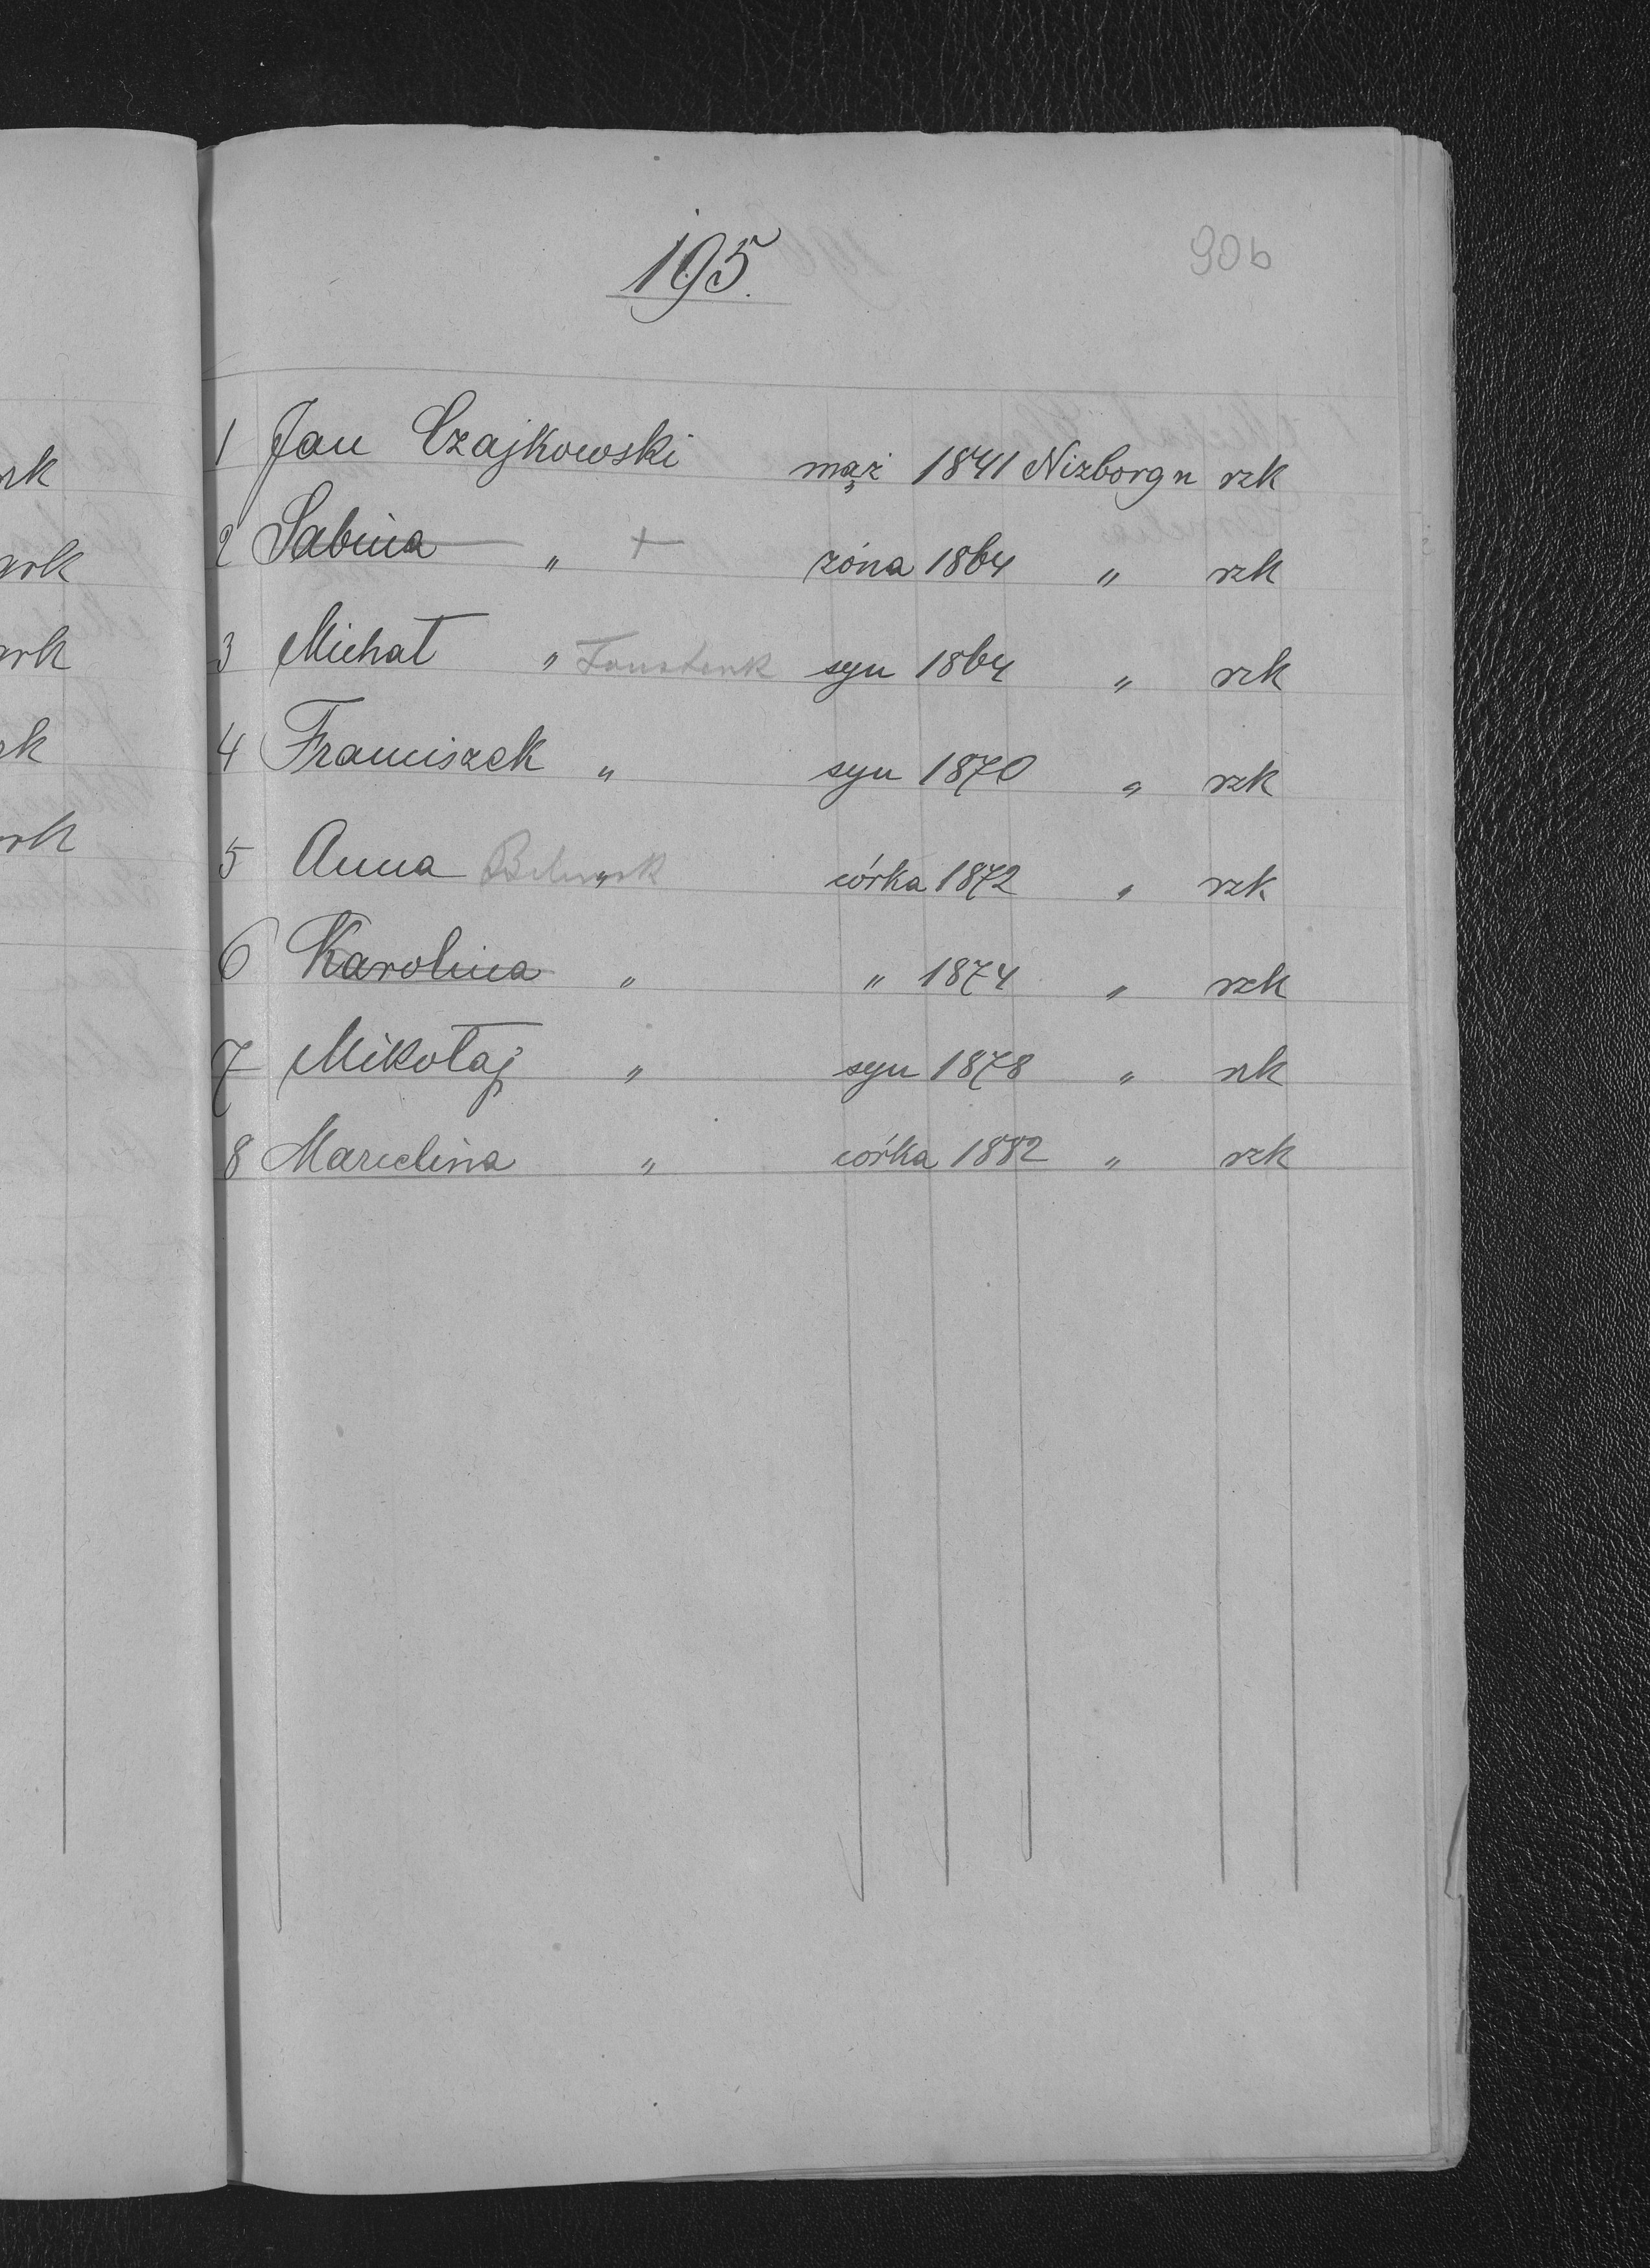 195.
90b
1 Jan Czajkowski mąż 1841 Nizborg n rzk
2 Sabina " + żona 1864 " rzk
3 Michał " syn 1864 " rzk
4 Franciszek " syn 1870 " rzk
5 Anna " córka 1872 " rzk
6 Karolina " " 1874 " rzk
7 Mikołaj " syn 1878 " rzk
8 Marcelina " córka 1882 " rzk